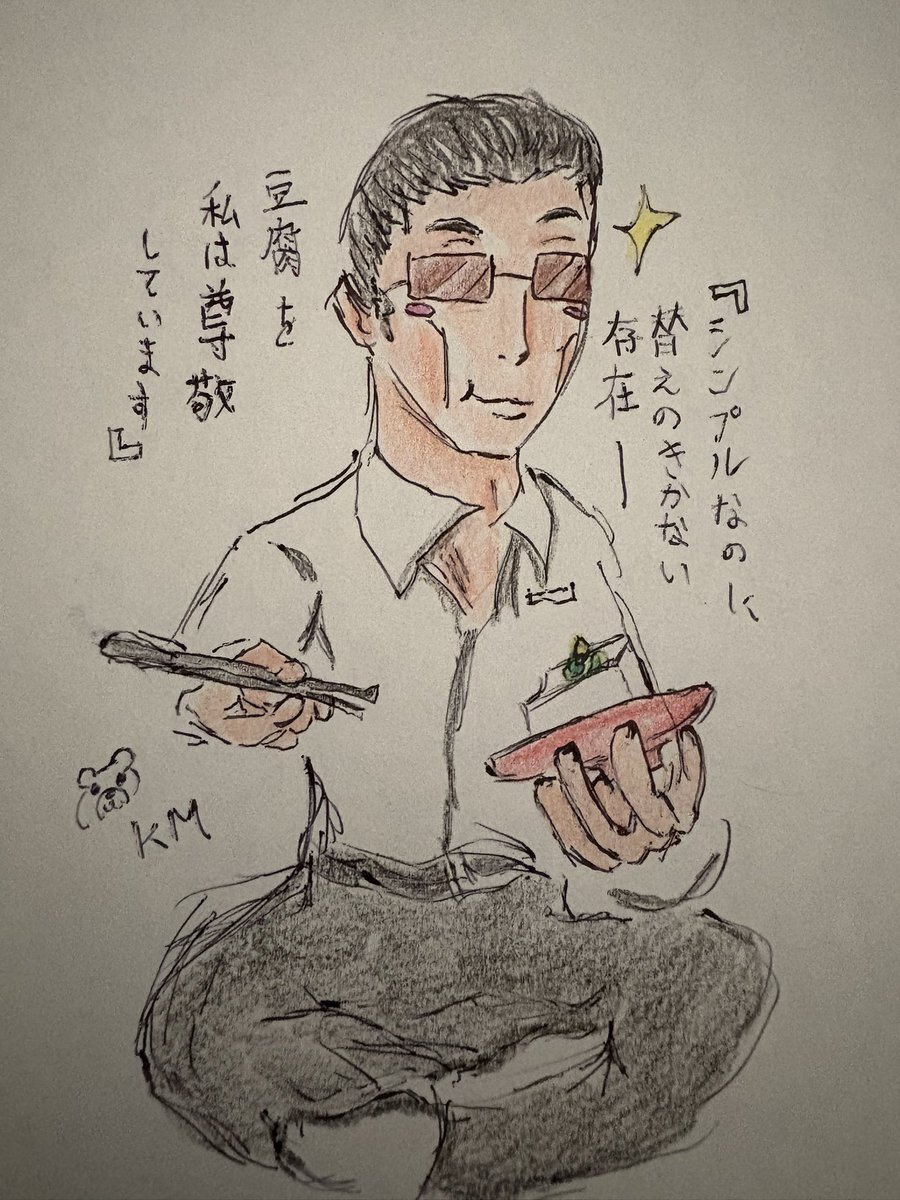 『シンプルなのに
替えのきかない
存在ー
豆腐を
私は尊敬
しています』
KM